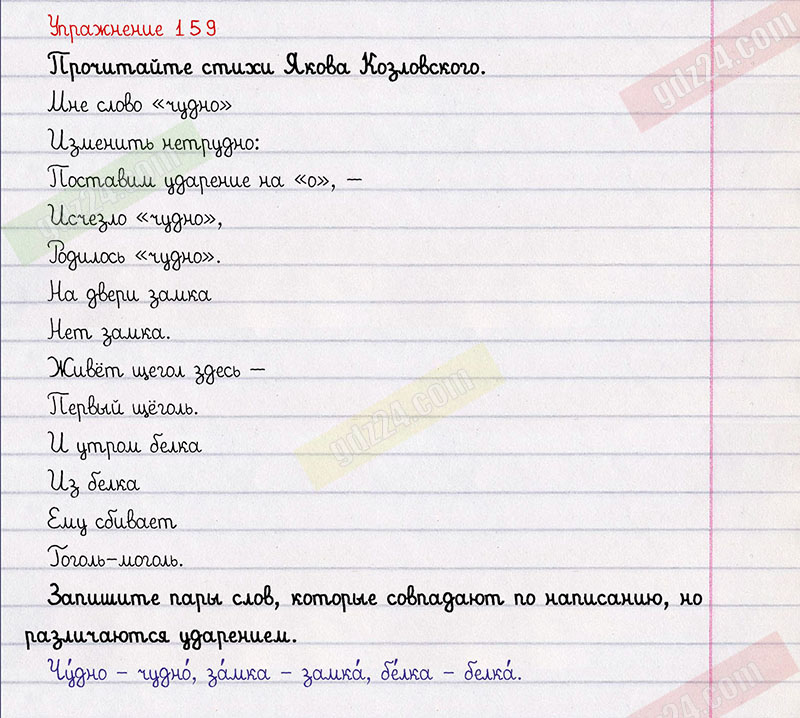 Упражнение 159
Прочитайте стихи Якова Козловского.
Мне слово «чудно»
Изменить нетрудно:
Поставим ударение на «о», –
Исчезло «чудно»,
Родилось «чудно».
На двери замка
Нет замка.
Живёт щегол здесь –
Первый щёголь.
И утром белка
Из белка
Ему сбивает
Гоголь-моголь.
Запишите пары слов, которые совпадают по написанию, но
различаются ударением.
Чу́дно – чудно́, за́мка – замка́, бе́лка – белка́.
gdz24.com
gdz24.com
gdz24.com
gdz24.com